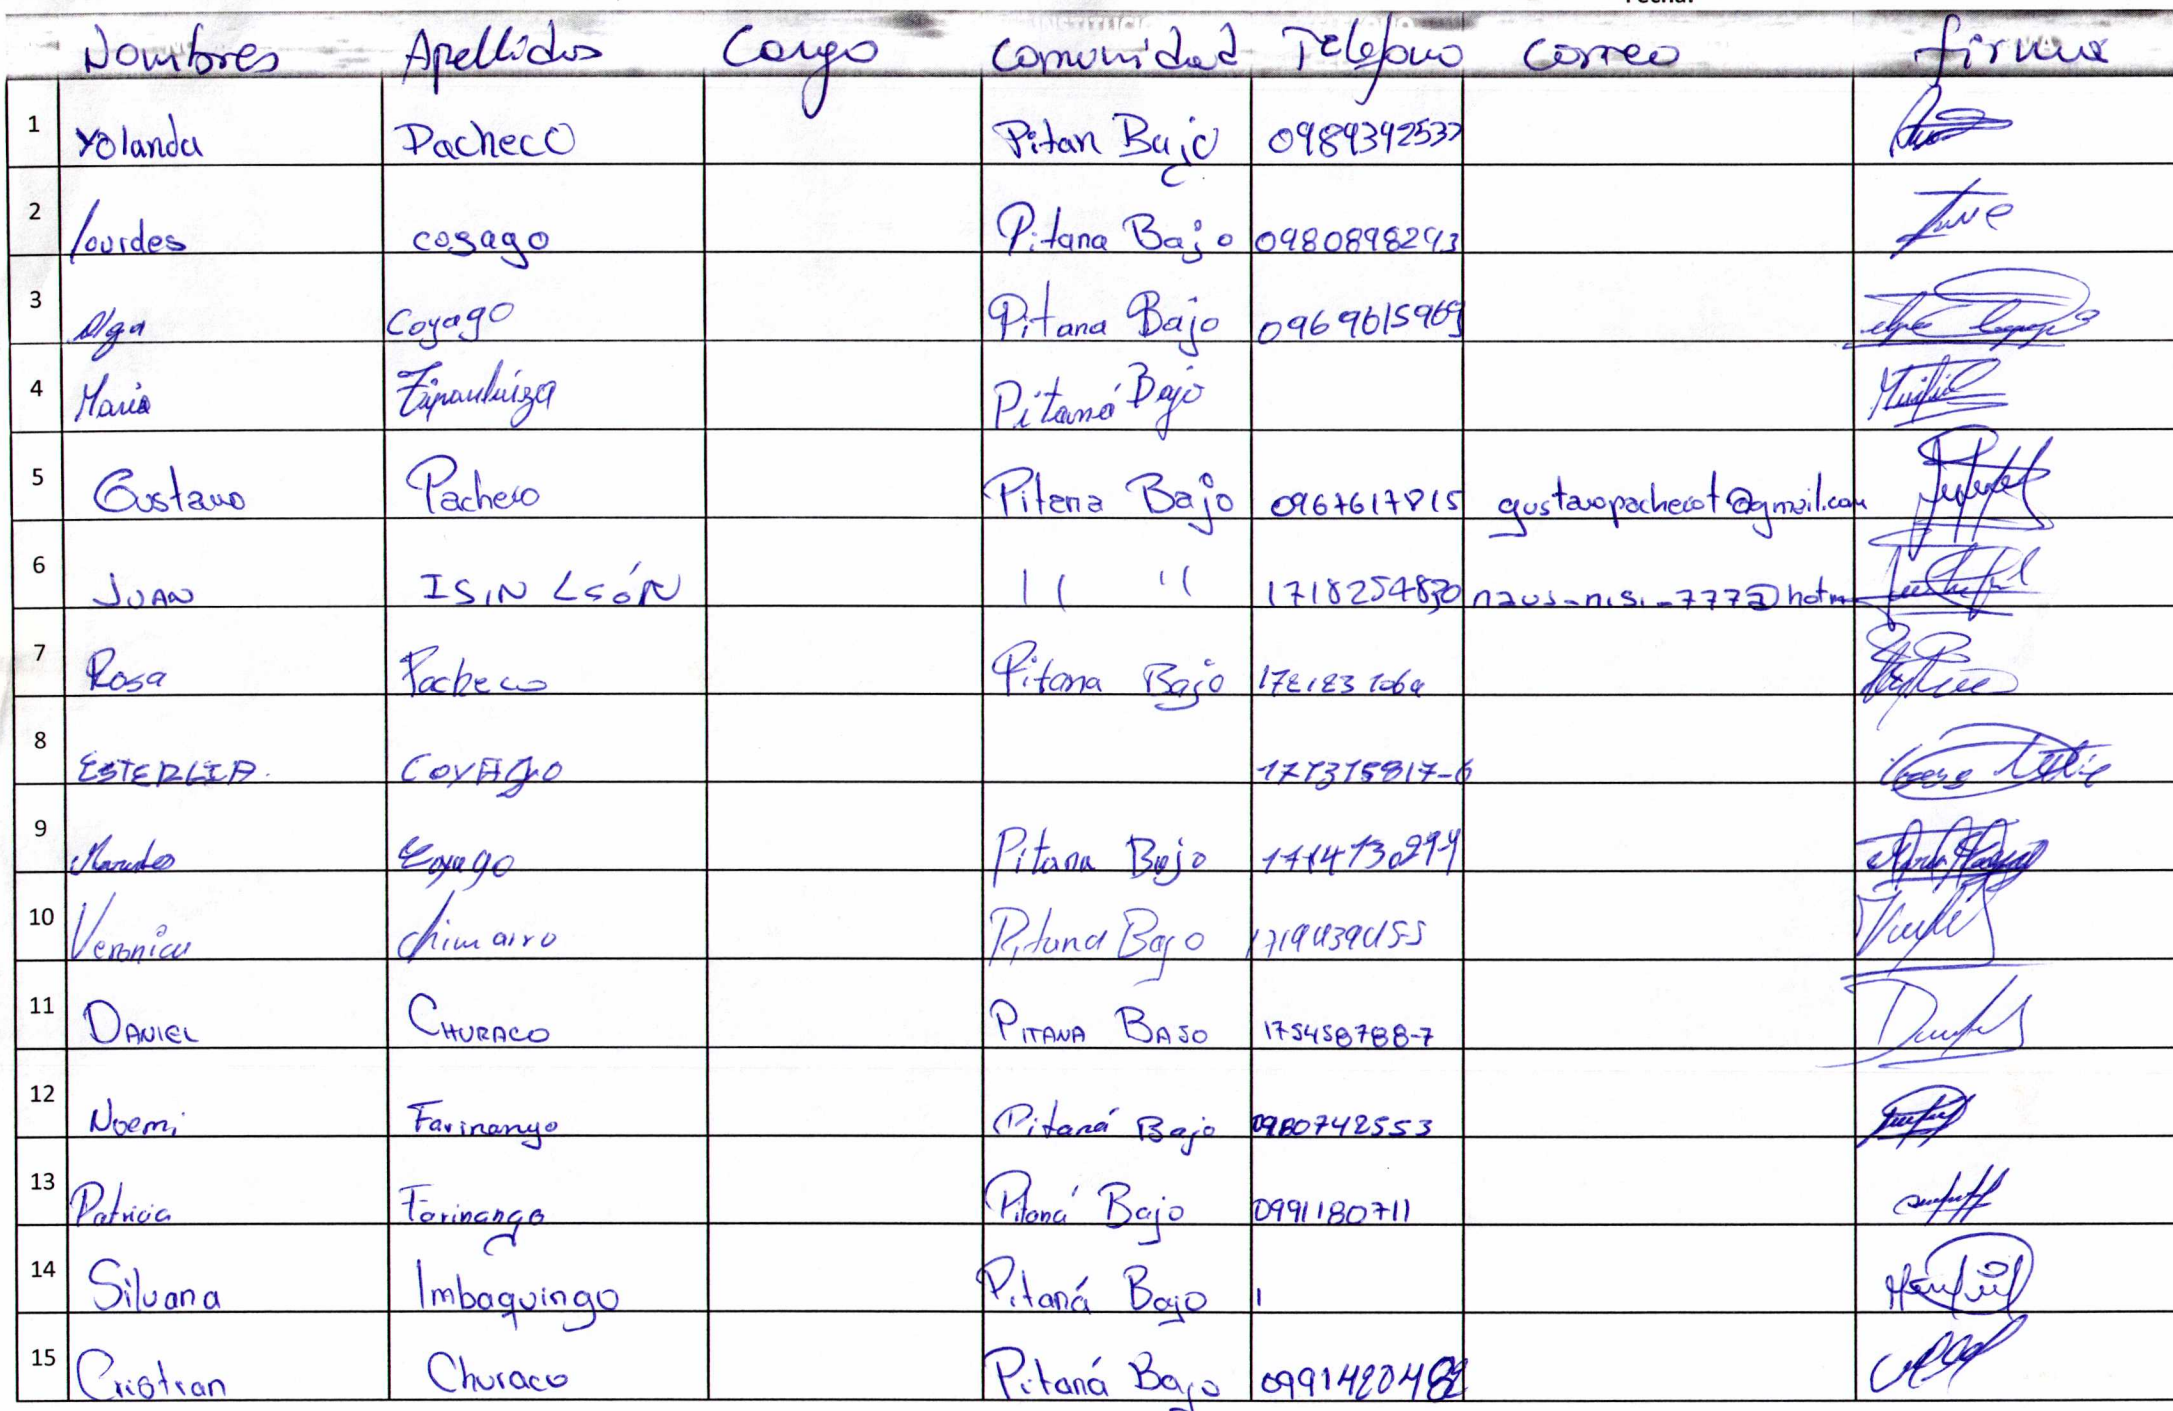 Nombres Apellidos Cargo Comunidad Telefono Correo firma
1 Yolanda Pacheco Pitan Bajo 0989392537
2 lourdes cosago Pitana Bajo 0980898293
3 Olga Coyago Pitana Bajo 0969615969
4 Maria Pitaná Bajo
5 Gustavo Pacheco Pitana Bajo 0967617815 gustavopachecot@gmail.com
6 JUAN ISIN LSÓN 11 11 naus-nisi-777@hotm
7 Rosa Pacheco Pitana Bajo
8 COYAGO 171375817-6
9 Coyago Pitana Bajo
10 Veronica chimarro Pitana Bajo
11 DANIEL CHURACO PITANA BAJO 175458788-7
12 Noemi Farinango Pitaná Bajo 0980742553
13 Patricia Farinango Pitaná Bajo 0991180711
14 Silvana Imbaquingo Pitaná Bajo 1
15 Cristian Churaco Pitaná Bajo